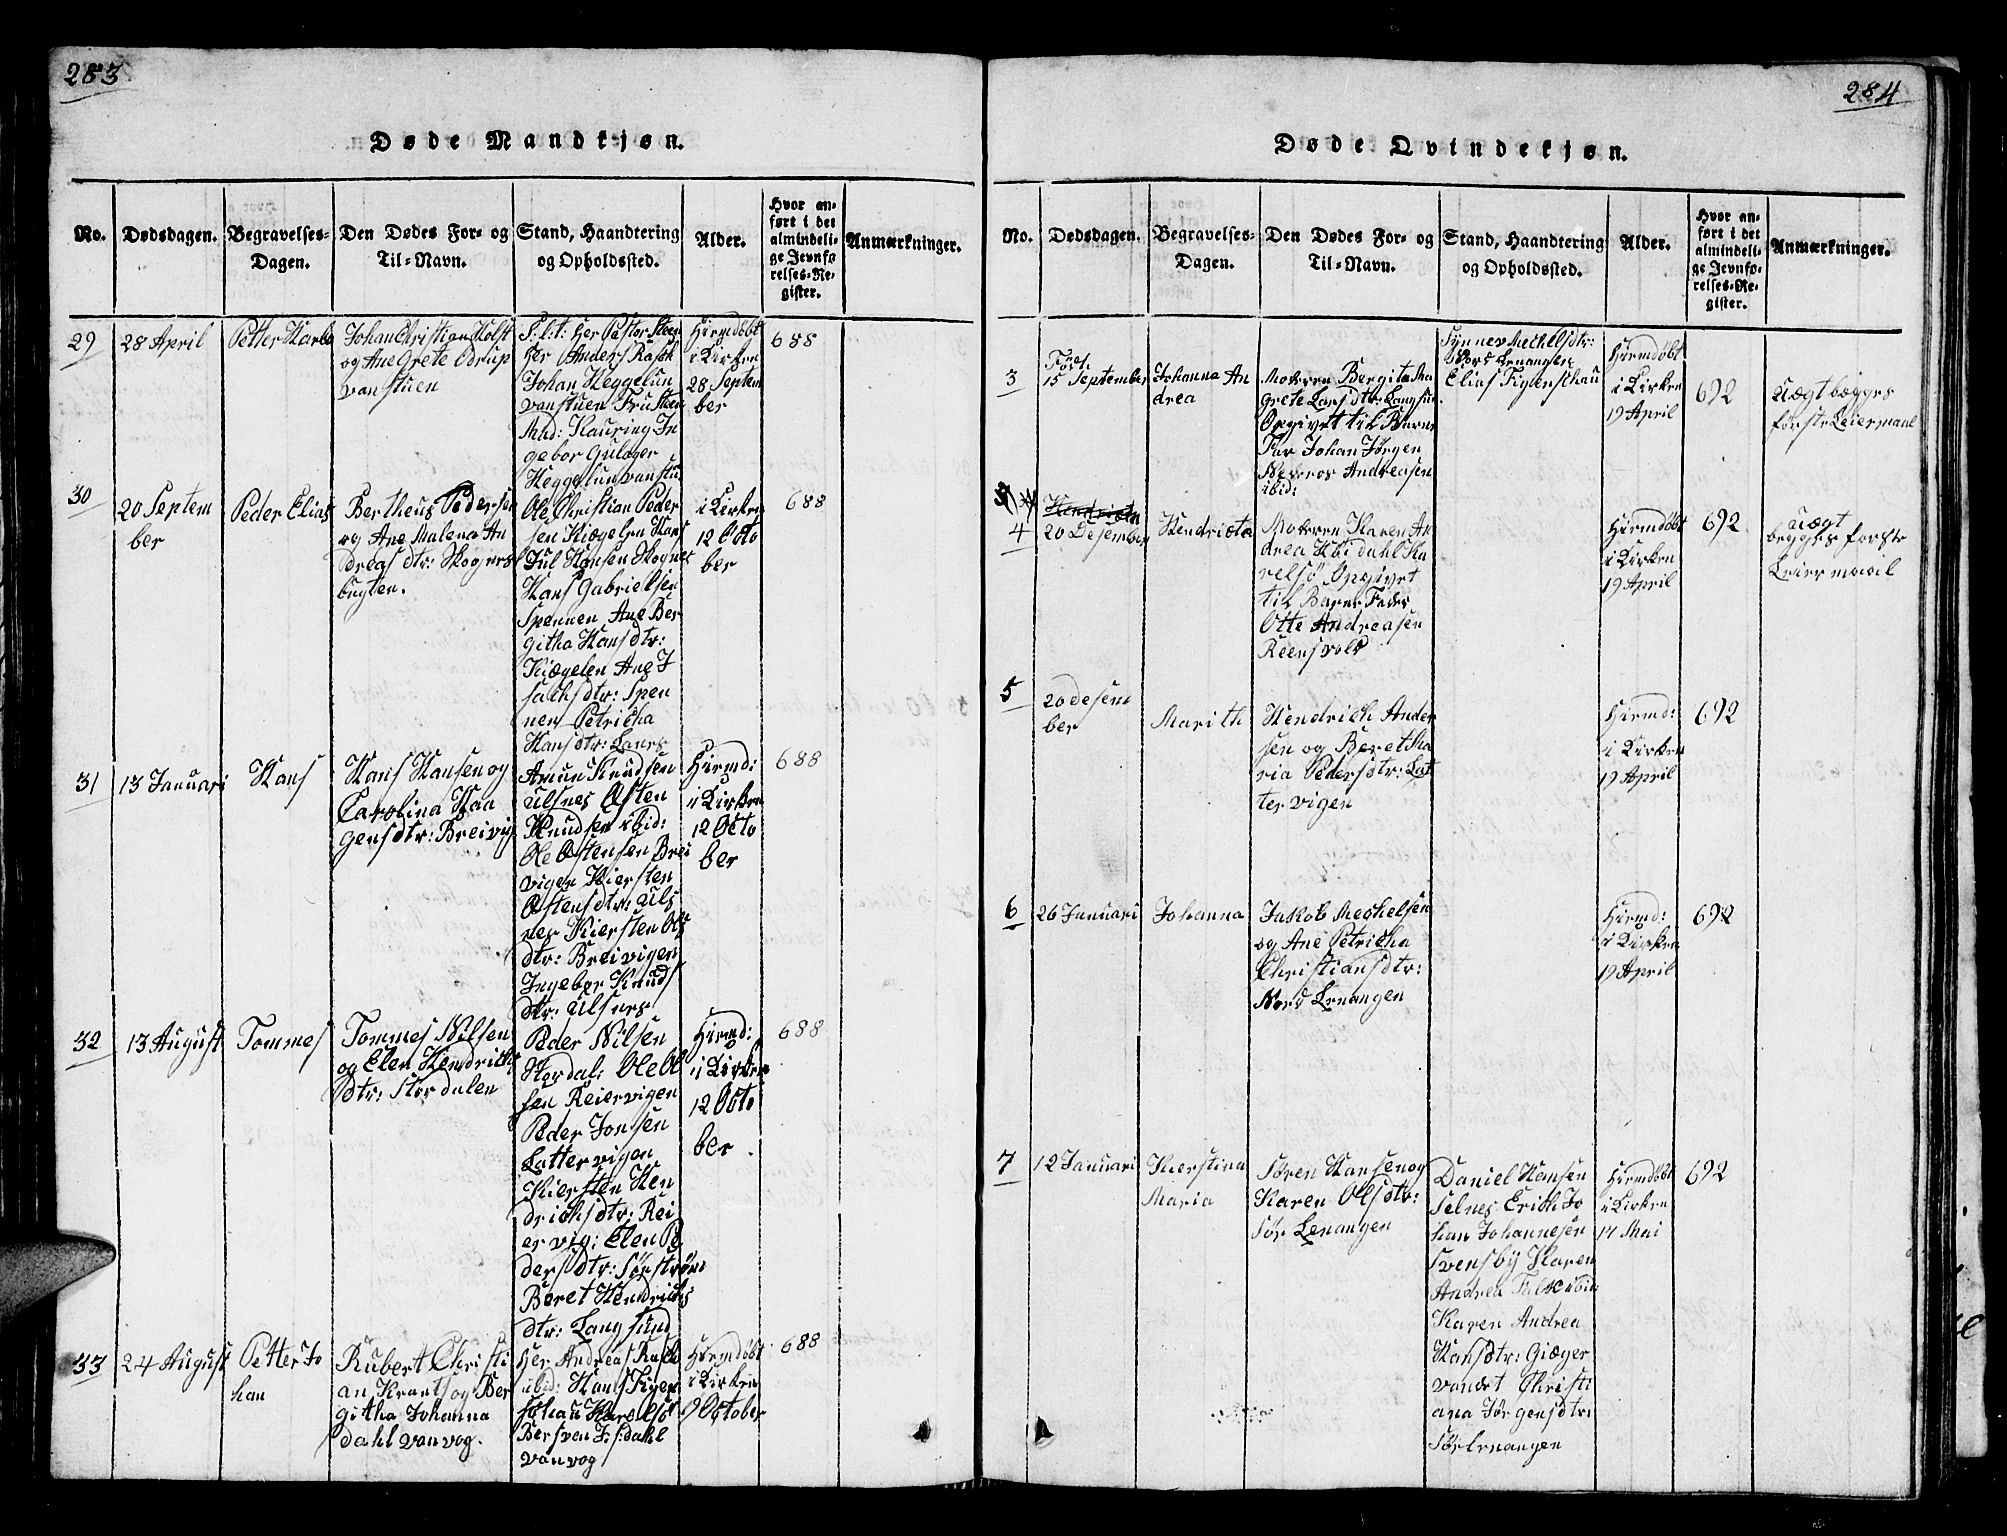 283
Døde Mandkjøn.
No.
Dødsdagen.
Begravelses-
Dagen.
Den Dødes For- og
Til-Navn.
Stand, Haandtering
og Opholdssted.
Alder.
Hvor an-
ført i det
almindeli-
ge Jevnfø-
relses-Re-
gister.
Anmærkninger.
29
28 April
Petter
Johan Christian Holst
og Ane Grete Odrup
vanstuen
S: l: t: Her Pastor Steen
Her Anders Rasch
Johan Heggelun
vanstuen Fru Steen
Mad: Hauring In
gebor Gulager
Heggelun vanstu
Hiemdøbt
i Kirken
28 Septem
ber
688
30
20 Septem
ber
Peder Elias
Bertheus Pedersen
og Ane Malena An
dreas dtr: Skogners
bugten.
Ole Christian Peder
sen Kiægelen Hans
Jul Hansen Skogner
Hans Gabrielsen
Spennen Ane Ber
githa Hansdtr:
Kiægelen Ane I
sachsdtr: Spen
nen Petricha
Hansdtr: Lanes
i Kirken
12 Octo
ber
688
31
13 Januari
Hans
Hans Hansen og
Carolina Haa
gensdtr: Breivig
Amun Knudsen
Ulsnes Østen
Knudsen ibid:
Ole Østensen Brei
vigen Kiersten
Østensdtr: Uls
nes Kiersten Ols
dtr: Breivigen
Ingebor Knuds
dtr: Ulsnes
Hiemd:
i Kirken
12 Octo
ber
688
32
13 August
Tommes
Tommes Nilsen
og Elen Hendrichs
dtr: Stordalen
Peder Nilsen
Stordal: Ole Ol
sen Reiervigen
Peder Jonsen
Lattervigen
Kiersten Hen
drichsdtr: Rei
ervig: Elen Pe
dersdtr: Sørstrøm
Beret Hendrichs
dtr: Langsund
Hiemd:
i Kirken
12 Octo
ber
688
33
24 August
Petter Jo
han
Rubert Christi
an Krants og Ber
githa Johanna
dahl vanvog.
Her Andreas Rasch
ibid: Hans Figen
schau Karelsø
Bersvan J:s: dahl
vanvog
Hiemdøbt
i Kirken
9 October
688
284
Døde Qvindekjøn.
No.
Dødsdagen.
Begravelses-
Dagen.
Den Dødes For- og
Til-Navn.
Stand, Haandtering
og Opholdssted.
Alder.
Hvor an-
ført i det
almindeli-
ge Jevnfø-
relses-Re-
gister.
Anmærkninger.
3
Født
15 September
Johanna An
drea
Moderen Bergita Ma
grete Larsdtr: Langsun
Opgivet til Barne
Far Johan Jørgen
Andreasen
ibid:
Synnev Mechelsdtr:
Nord Lenangen
Elias Figenschau
Hiemdøbt
i Kirken
19 April
692
Uægt bægges
første Leiermaal
4
20 Desember
Hendricta
Moderen Karen An
drea Ebi dahl Ka
relsø Opgivet
til Barne Fader
Otte Andreasen
Reensvold
Hiemdøbt
i Kirken
19 April
692
Uægt
begges forste
Leiermaal
5
20 desem
ber
Marith
Hendrich Ander
sen og Beret Ma
ria Pedersdtr: Lat
tervigen
Hiemd:
i Kirken
19 April
692
6
26 Januari
Johanna
Jakob Mechelsen
og Ane Petricha
Christiansdtr:
Nord Lenangen
Hiemd:
i Kirken
19 April
692
7
12 Januari
Kierstina
Maria
Søren Hansen og
Karen Olsdtr:
Sør Lenangen
Daniel Hansen
Selnes Erich Jo
han Johannesen
Svensby Karen
Andrea Falck ibid:
Karen Andrea
Hansdtr: Giæger
vandet Christi
ana Jørgensdtr:
Sør Lenangen
Hiemdøbt
i Kirken
17 Mai
692